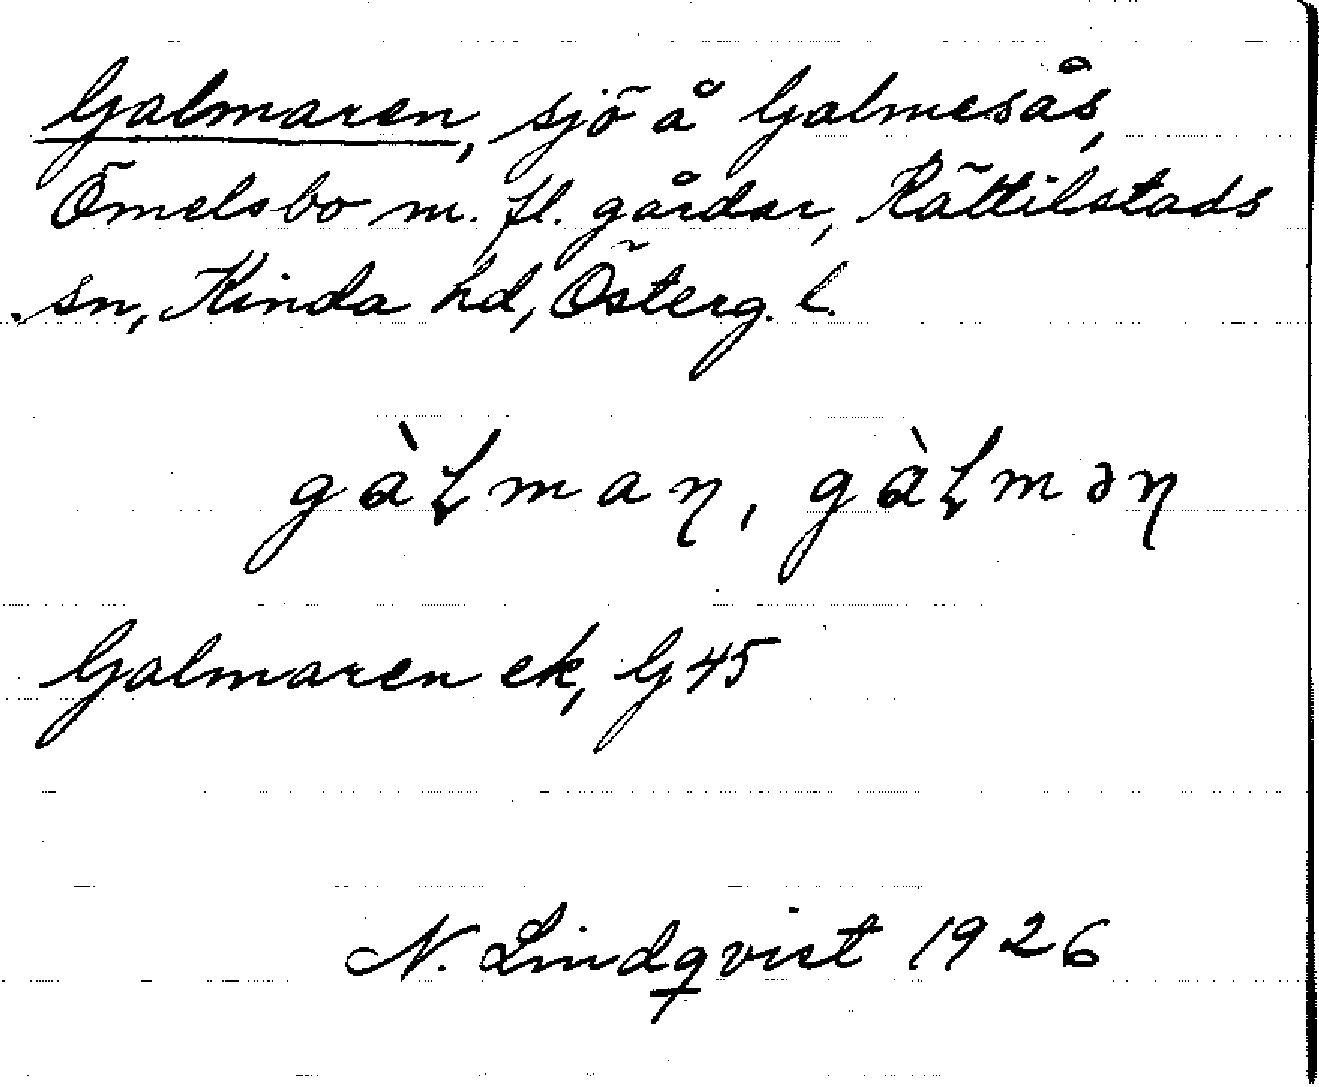 Galmaren, sjö å Galmesås,
Ömelsbo m. fl. gårdar, Kättilstads
sn, Kinda hd, Österg. l.
gàɫmaꞑ, gàɫməꞑ
Galmaren ek, G 45
N. Lindqvist 1926